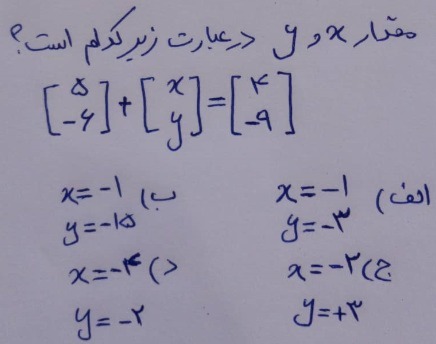 مقدار x و y در عبارت زیر کدام است؟
[۵ -۶] + [x y] = [۴ -۹]
الف) x = -۱ ب) x = -۱
y = -۳ y = -۱۵
ج) x = -۲ د) x = -۴
y = +۳ y = -۲